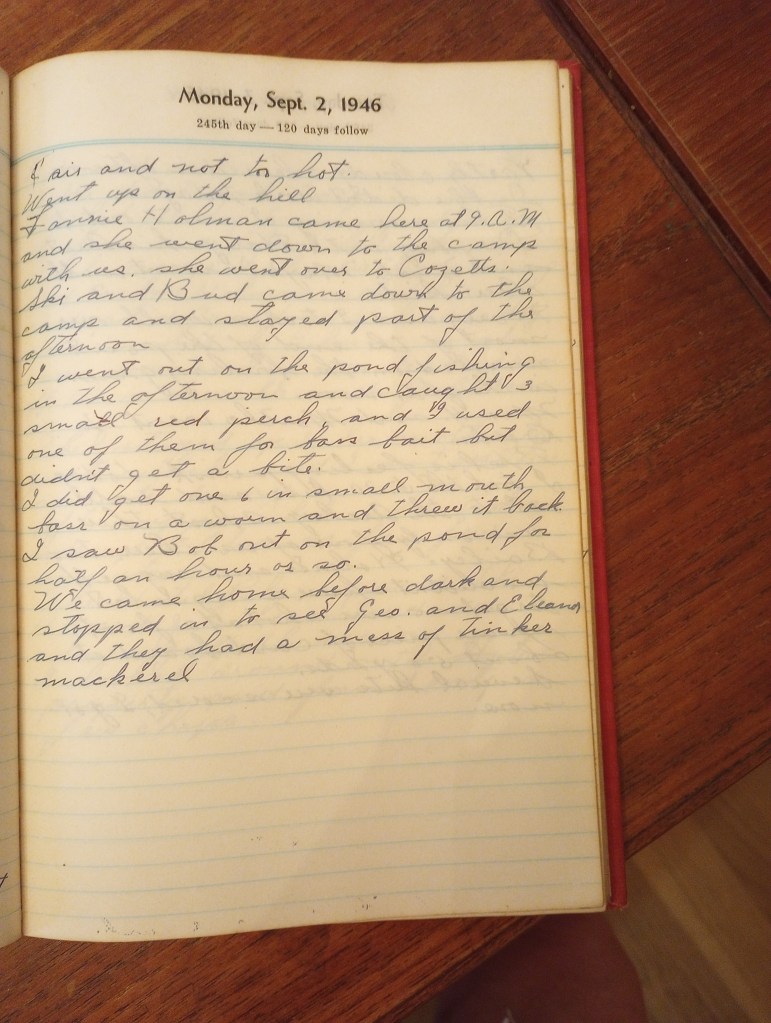 Monday, Sept. 2, 1946
245th day — 120 days follow
Fair and not to hot.
Went up on the hill
Fannie Holman came here at 9. A.M
and she went down to the camp
with us. she went over to Cozetts.
Ski and Bud came down to the
camp and stayed part of the
afternoon
I went out on the pond fishing
in the afternoon and caught 3
small red perch, and I used
one of them for bass bait but
didn't get a bite.
I did get one 6 in small mouth
bass on a worm and threw it back.
I saw Bob out on the pond for
half an hour or so.
We came home before dark and
stopped in to see Geo. and Eleanor
and they had a mess of Tinker
mackerel